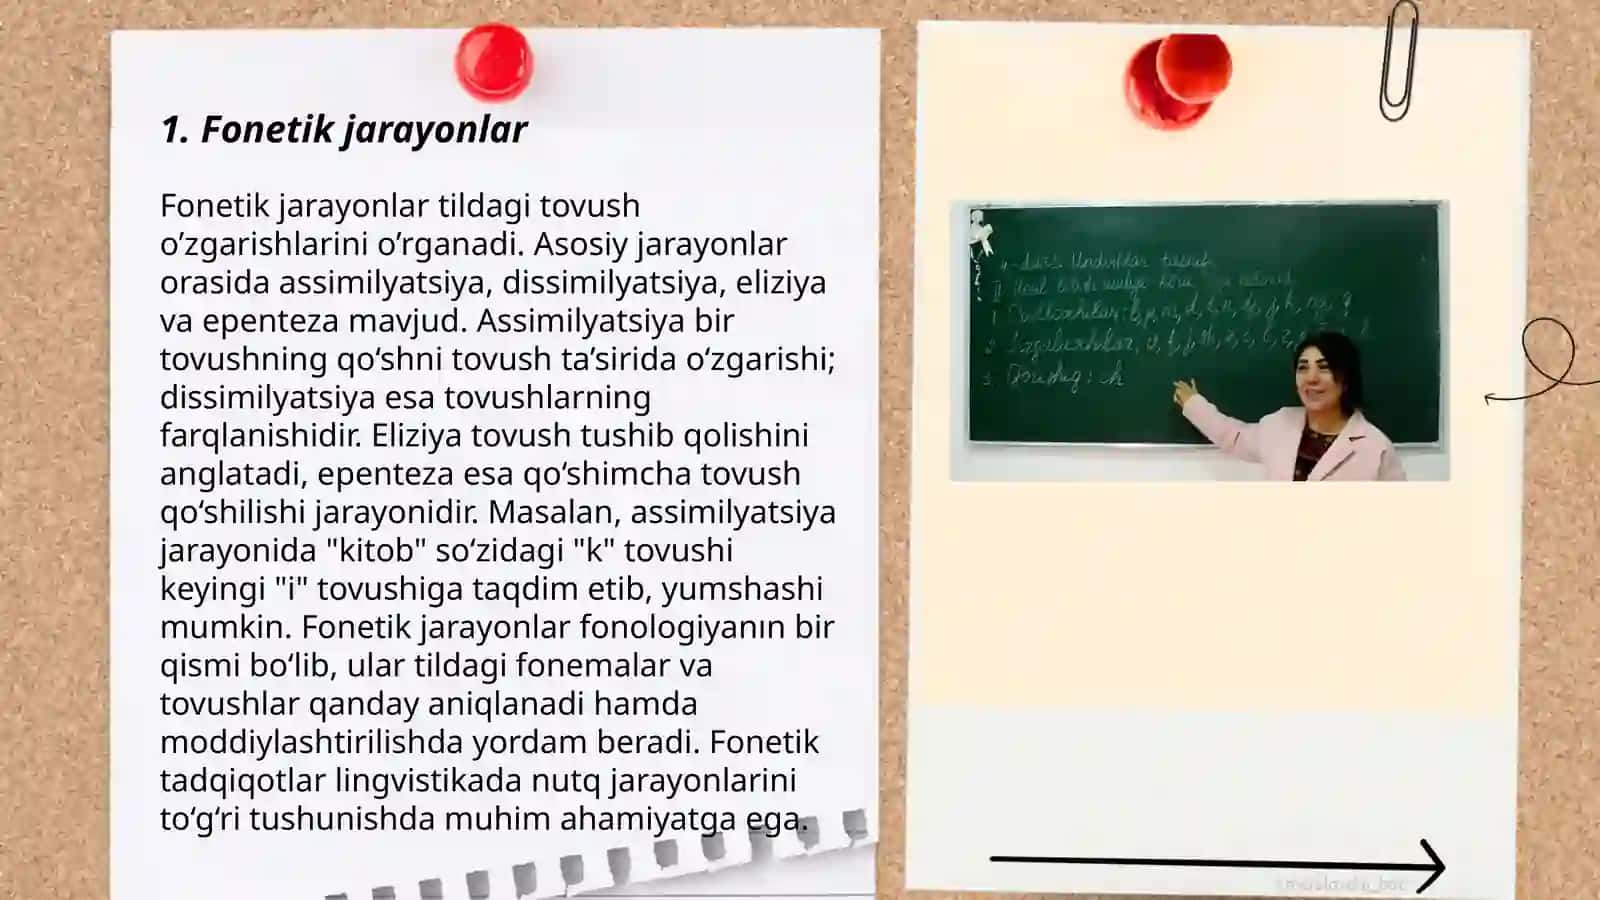 1. Fonetik jarayonlar
Fonetik jarayonlar tildagi tovush
o’zgarishlarini o’rganadi. Asosiy jarayonlar
orasida assimilyatsiya, dissimilyatsiya, eliziya
va epenteza mavjud. Assimilyatsiya bir
tovushning qo‘shni tovush ta’sirida o‘zgarishi;
dissimilyatsiya esa tovushlarning
farqlanishidir. Eliziya tovush tushib qolishini
anglatadi, epenteza esa qo‘shimcha tovush
qo‘shilishi jarayonidir. Masalan, assimilyatsiya
jarayonida "kitob" so‘zidagi "k" tovushi
keyingi "i" tovushiga taqdim etib, yumshashi
mumkin. Fonetik jarayonlar fonologiyanın bir
qismi bo‘lib, ular tildagi fonemalar va
tovushlar qanday aniqlanadi hamda
moddiylashtirilishda yordam beradi. Fonetik
tadqiqotlar lingvistikada nutq jarayonlarini
to‘g‘ri tushunishda muhim ahamiyatga ega.
4-dars. Undoshlar tasnifi
II
1
2
3